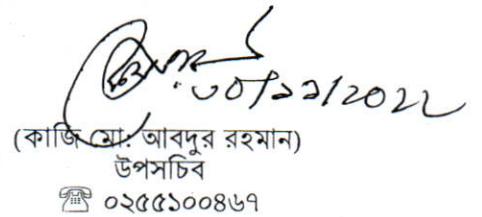 ৩০/১১/২০২২
(কাজি মো: আবদুর রহমান)
উপসচিব
☎ ০২৫৫১০০৪৬৭